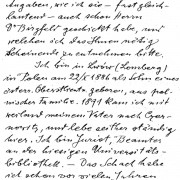 Angaben, wie ich sie – fast gleich-
lautend – auch schon Herrn
Dr Birgfeld geschickt habe, und
welchen ich das Ihnen nötig
Scheinende zu entnehmen bitte.
Ich bin in Lwów (Lemberg)
in Polen am 22/1 1886 als Sohn eines
österr. Oberstleutn. geboren, aus pol-
nischer Familie. 1891 kam ich mit
meinem Vater nach Czer-
nowitz, und lebe seither ständig
hier. Ich bin Jurist, Beamter
an der hiesigen Universitäts-
bibliothek. – Das Schach habe
ich schon vor vielen Jahren